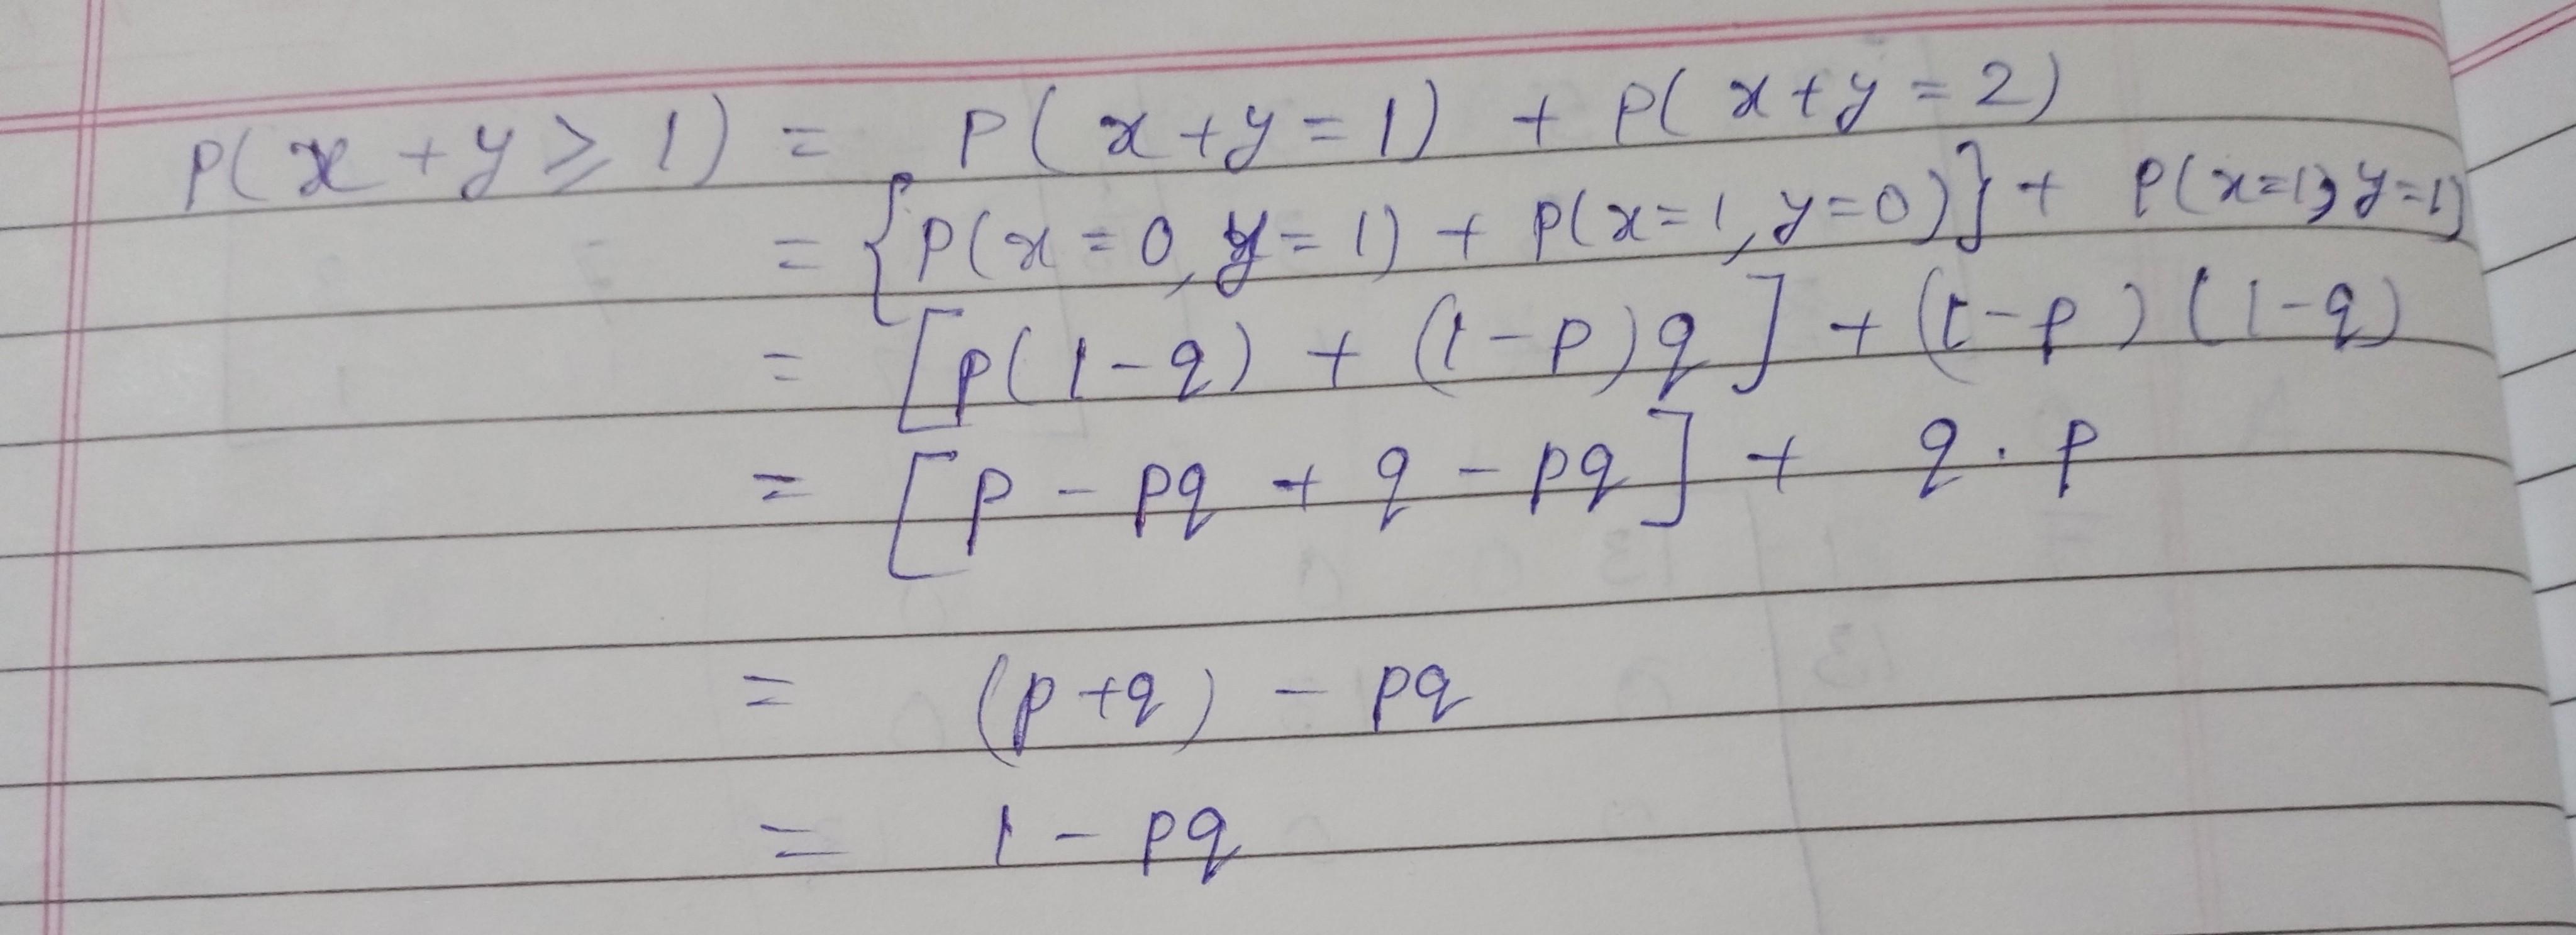 P(x + y ≥ 1) = P(x + y = 1) + P(x + y = 2)
= {P(x = 0, y = 1) + P(x = 1, y = 0)} + P(x = 1, y = 1)
= [p(1 - q) + (1 - p)q] + (1 - p)(1 - q)
= [p - pq + q - pq] + q . p
= (p + q) - pq
= 1 - pq